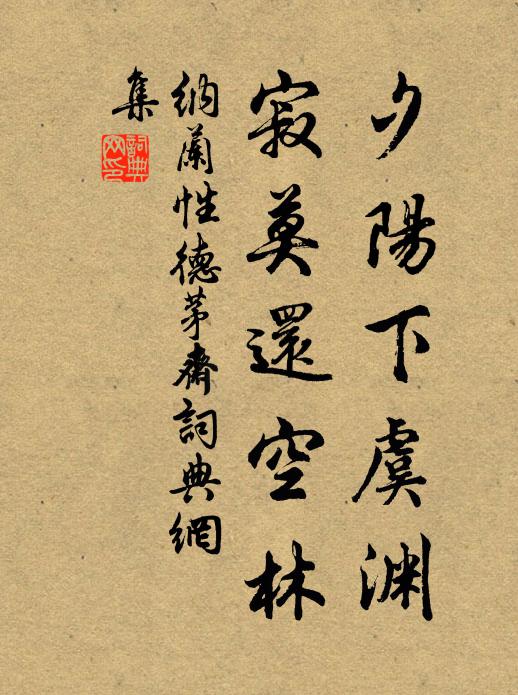 夕陽下虞渊
寂莫還空林
納蘭性德茅齋詞典網
集
詞典
网印